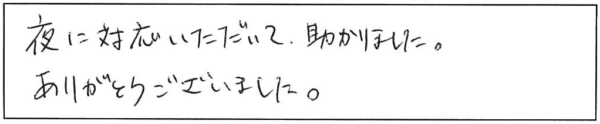 夜に対応いただいて、助かりました。
ありがとうございました。